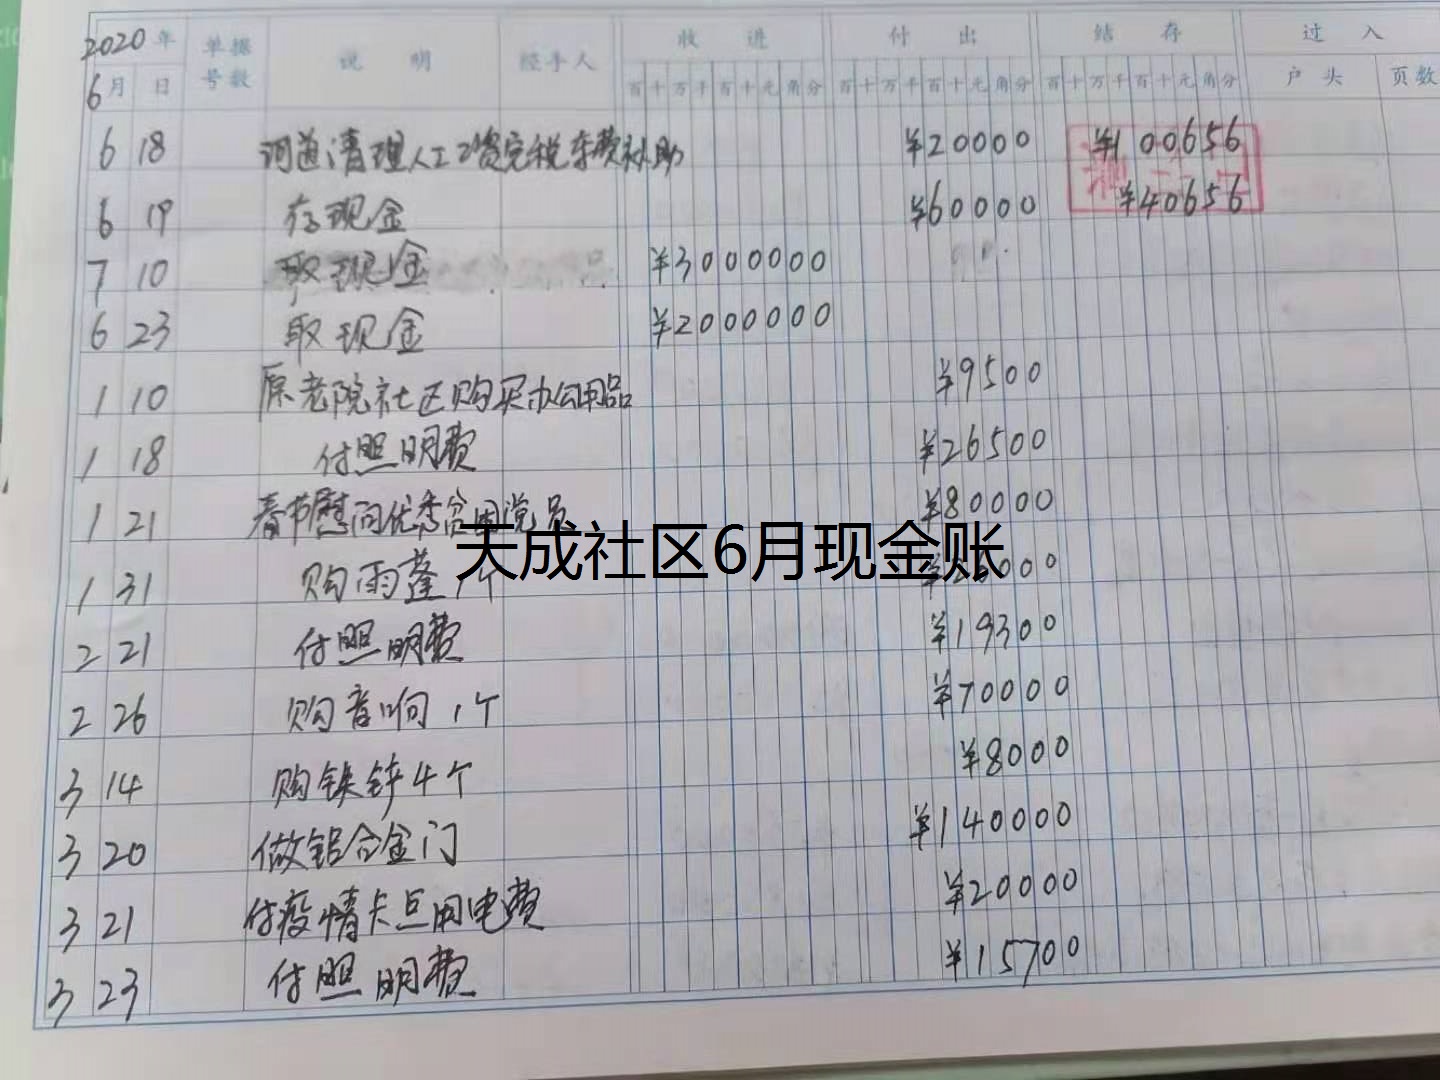 2020年 单据号数 说明 经手人 收进 付出 结存 过入
6月 日 百十万千百十元角分 百十万千百十元角分 百十万千百十元角分 户头 页数
6 18 河道清理人工工资完税车费补助 ¥20000 ¥100656
6 19 存现金 ¥60000 ¥40656
7 10 取现金 ¥3000000
6 23 取现金 ¥2000000
1 10 原老院社区购买办公用品 ¥9500
1 18 付照明费 ¥26500
1 21 春节慰问优秀贫困党员 ¥80000
天成社区6月现金账
1 31 购雨蓬1个
2 21 付照明费 ¥19300
2 26 购音响1个 ¥70000
3 14 购铁锌4个 ¥8000
3 20 做铝合金门 ¥140000
3 21 付疫情卡点用电费 ¥20000
3 23 付照明费 ¥15700